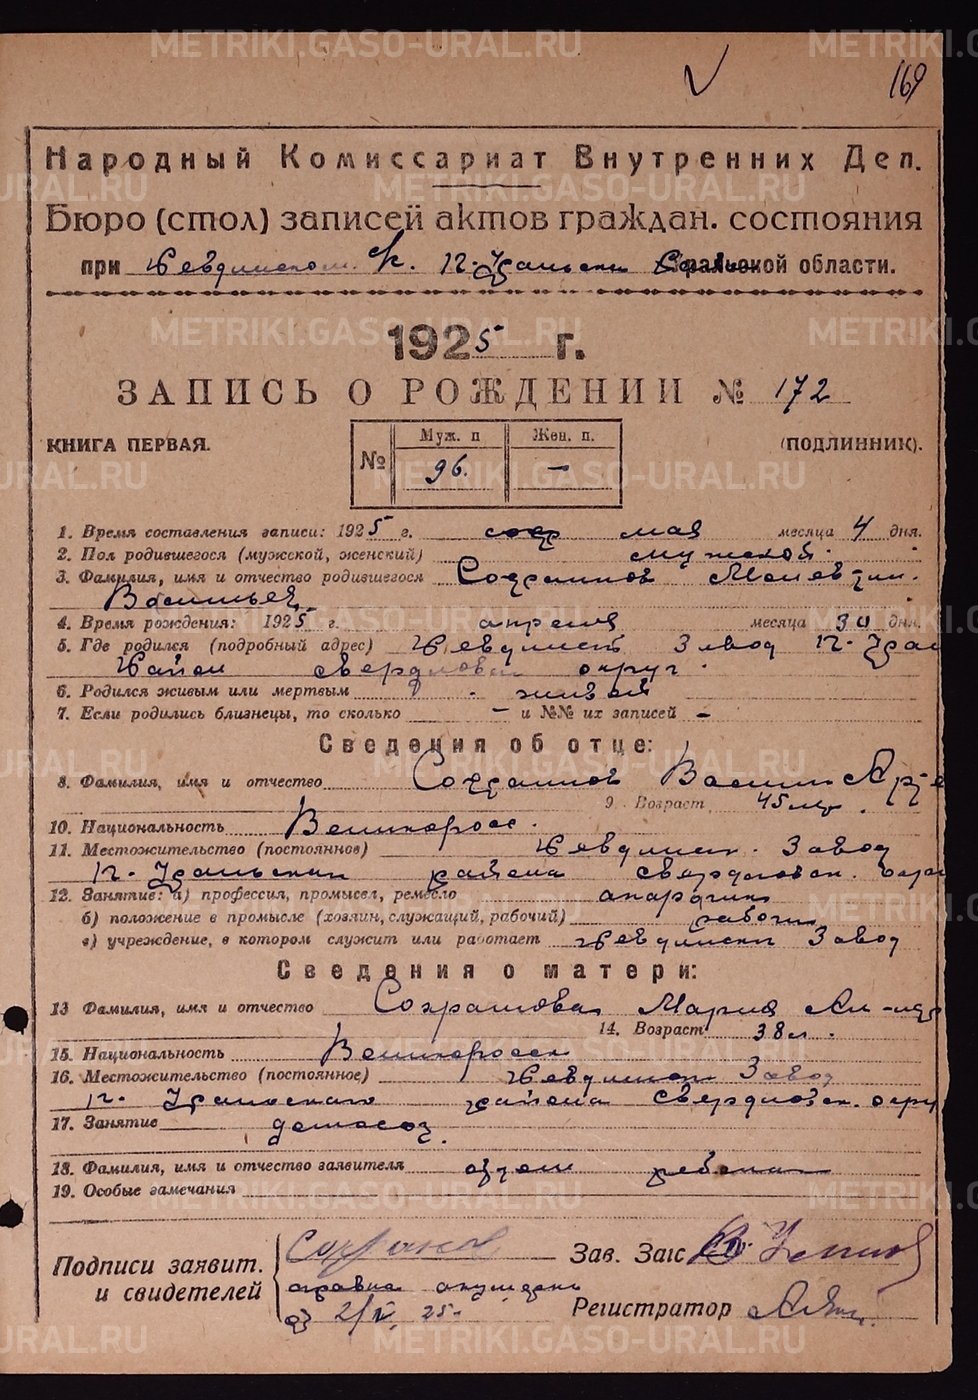 169
Народный Комиссариат Внутренних Дел.
Бюро (стол) записей актов граждан. состояния
при Ревдинском П-Уральск Уральской области.
1925 г.
ЗАПИСЬ О РОЖДЕНИИ № 172
КНИГА ПЕРВАЯ.
№ Муж. п Жен. п.
96. —
(ПОДЛИННИК).
1. Время составления записи: 1925 г. мая месяца 4 дня.
2. Пол родившегося (мужской, женский) мужской.
3. Фамилия, имя и отчество родившегося
Васильев.
4. Время рождения: 1925 г. апреля месяца 30 дня.
5. Где родился (подробный адрес) Ревдинск Завод П-Урал
район свердловск округ.
6. Родился живым или мертвым живой
7. Если родились близнецы, то сколько — и №№ их записей —
Сведения об отце:
8. Фамилия, имя и отчество Васил
9. Возраст 45 лет.
10. Национальность Великоросс.
11. Местожительство (постоянное) Ревдинск. Завод
П-Уральск района свердловск. окру
12. Занятие: а) профессия, промысел, ремесло
б) положение в промысле (хозяин, служащий, рабочий) рабочи
в) учреждение, в котором служит или работает Ревдинск Завод
Сведения о матери:
13 Фамилия, имя и отчество Мария
14. Возраст 38 л.
15. Национальность Великоросск
16. Местожительство (постоянное) Ревдинск Завод
П-Уральского района свердловск. окру
17. Занятие домохоз.
18. Фамилия, имя и отчество заявителя отец ребенка
19. Особые замечания
Подписи заявит. и свидетелей
справка акушерк
от 2/V 25.
Зав. Загс
Регистратор
METRIKI.GASO-URAL.RU